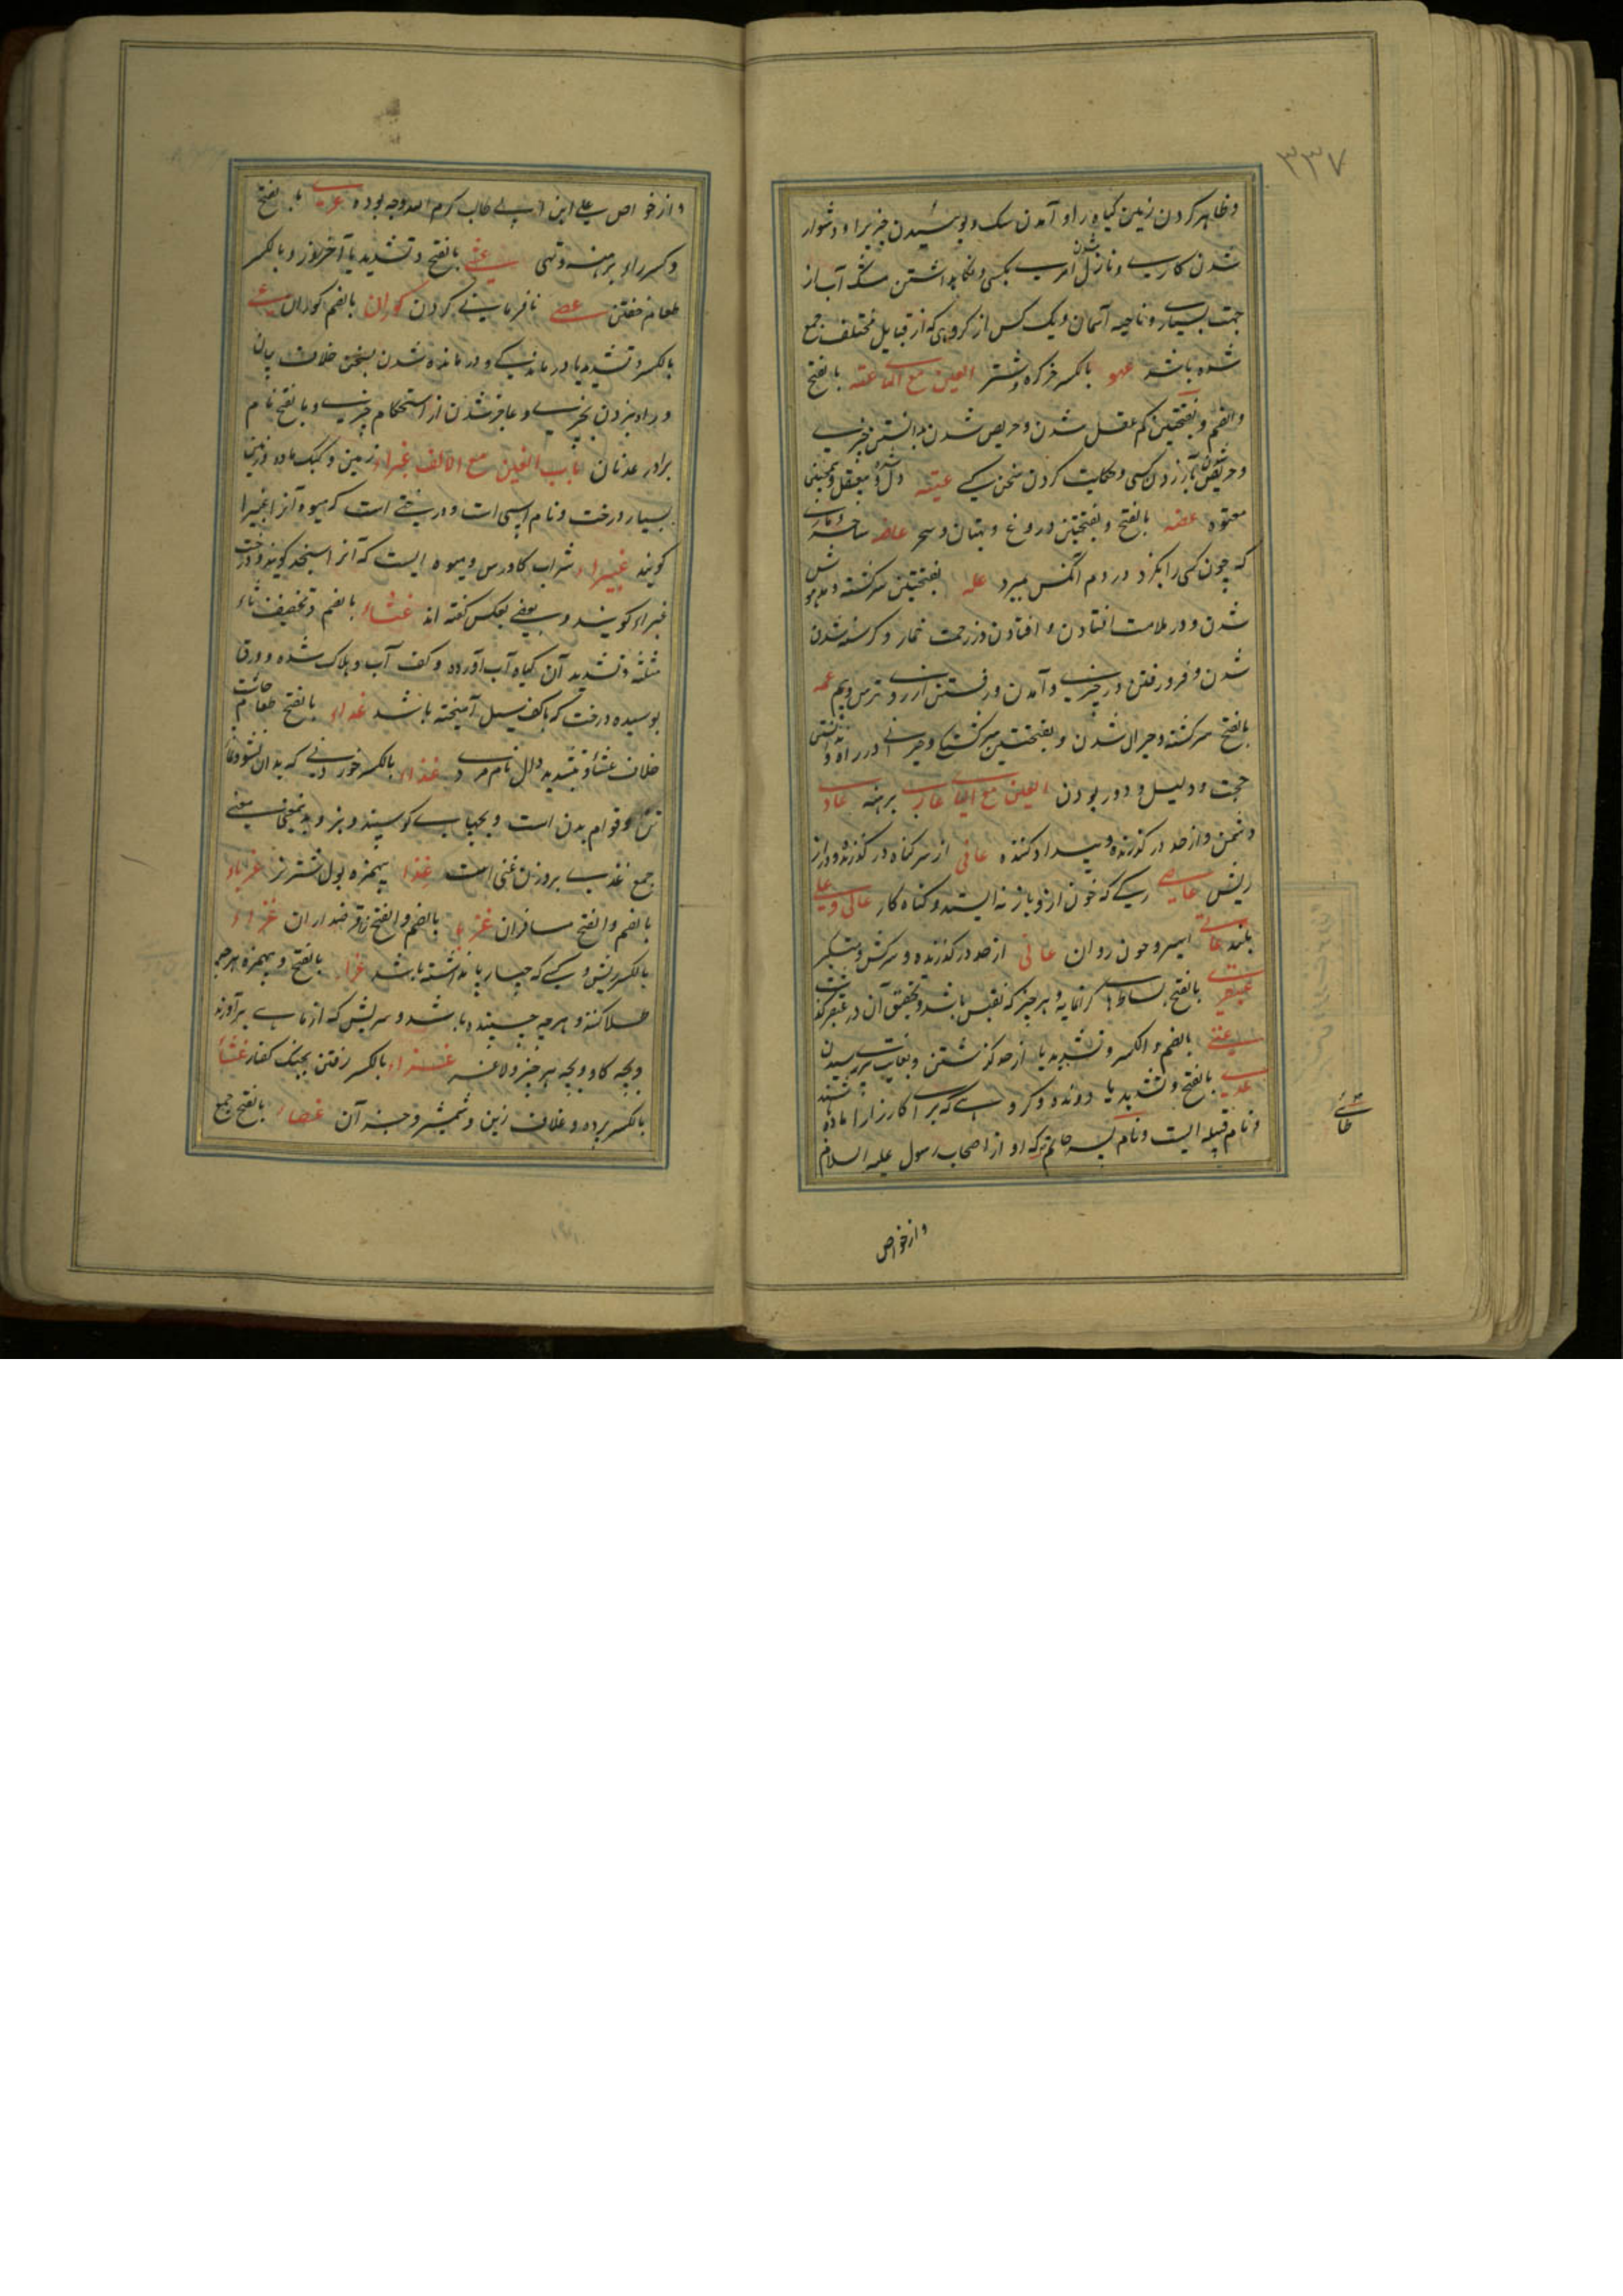 ۳۳۷
و ظاهر کردن زمین گیاه را و آمدن سک و پوشیدن چیزیرا و دشوار
شدن کاری و نازل شدن امری بکسی و نگاه داشتن مشک آب از
جهت بسیاری و ناحیه آسمان و یک کس از گروهی که از قبایل مختلف جمع
شده باشد عهو بالکسر خرکره و شتر العین مع الهاء عته بالفتح
والضم و بفتحتین کم عقل شدن و حریص شدن بدانستن چیزی
و حریص شدن بآزردن کسی و حکایت کردن سخن کسی عیته و بیعقل و همچنین
معتوه عضه بالفتح و بفتحتین دروغ و بهتان و سحر عاضه ساحر و ماری
که چون کسی را بگزد در دم آنکس بمیرد عله بفتحتین سرکشته و مدهوش
شدن و در ملامت افتادن و افتادن در زحمت خمار و گرسنه شدن
شدن و فرو رفتن در چیزی و آمدن و رفتن از روی ترس و بیم عمه
بالفتح سرکشته و حیران شدن و بفتحتین سرکشتگی و حیرانی در راه و ندانستن
حجت و دلیل و دور بودن العین مع الیاء عاری برهنه عادی
دشمن و از حد در گذرنده و بیداد کننده عافی از سر گناه در گذرنده و دراز
ریش عاصی رگی که خون از و باز نه ایستد و گناه کار عالی و علی
بلند عانی اسیر و خون روان عاتی از حد در گذرنده و سرکش و متکبر
عبقری بالفتح بساطها گرانمایه و هر چیز که نفیس باشد و تحقیق آن در عبقر گذشت
عتی بالضم والکسر و تشدید یا از حد گذشتن و بغایت پیری رسیدن
عدی بالفتح و تشدید یا دونده و گروهی که برای کارزار آماده باشند
و نام قبیله ایست و نام پسر حاتم که او از اصحاب رسول علیه السلام
طائی
و از خواص
و از خواص علی ابن ابی طالب کرم الله وجهه بوده عری بالفتح
و کسر راء برهنه و تهی عشی بالفتح و تشدید یا آخر روز و بالکسر
طعام خفتن عصی نافرمانی کردن کوران بالضم کوران عی
بالکسر و تشدید یا درماندگی و درمانده شدن بسخن خلاف بیان
و راه نبردن بچیزی و عاجز شدن از استحکام چیزی و بالفتح نام
برادر عدنان باب الغین مع الالف غبراء زمین و کبک ماده و زمین
بسیار درخت و نام اسپی است و درختی است که میوه آنرا غبیرا
گویند غبیراء شراب گاورس و میوه ایست که آنرا سنجد گویند و درخت
غبراء گویند و بعضی بعکس گفته اند غثاء بالضم و تخفیف ثاء
مثلثه و تشدید آن گیاه آب آورده و کف آب و هلاک شده و ورق
پوسیده درخت که با کف سیل آمیخته باشد غداء بالفتح طعام چاشت
خلاف عشاء و بتشدید دال نام مردی غذاء بالکسر خوردنی که بدان نشو و نما
تن و قوام بدن است و بچهای گوسپند و بز و بدین معنی
جمع غذی بر وزن غنی است غذا بیهمزه بول شتر نر غرباء
بالضم والفتح مسافران غرماء بالضم والفتح را قرضداران غراء
بالکسر سریش و کسی که چهار پا نداشته باشد غرا بالفتح و بیهمزه هر چه
طلا کنند و هر چه چسپنده باشد و سریش که از ماهی بر آورند
و بچه گاو و بچه هر چیز و لاغر غزاء بالکسر رفتن بجنگ کفار غشاء
بالکسر پرده و غلاف زین و شمشیر و جز آن غصا بالفتح جمع